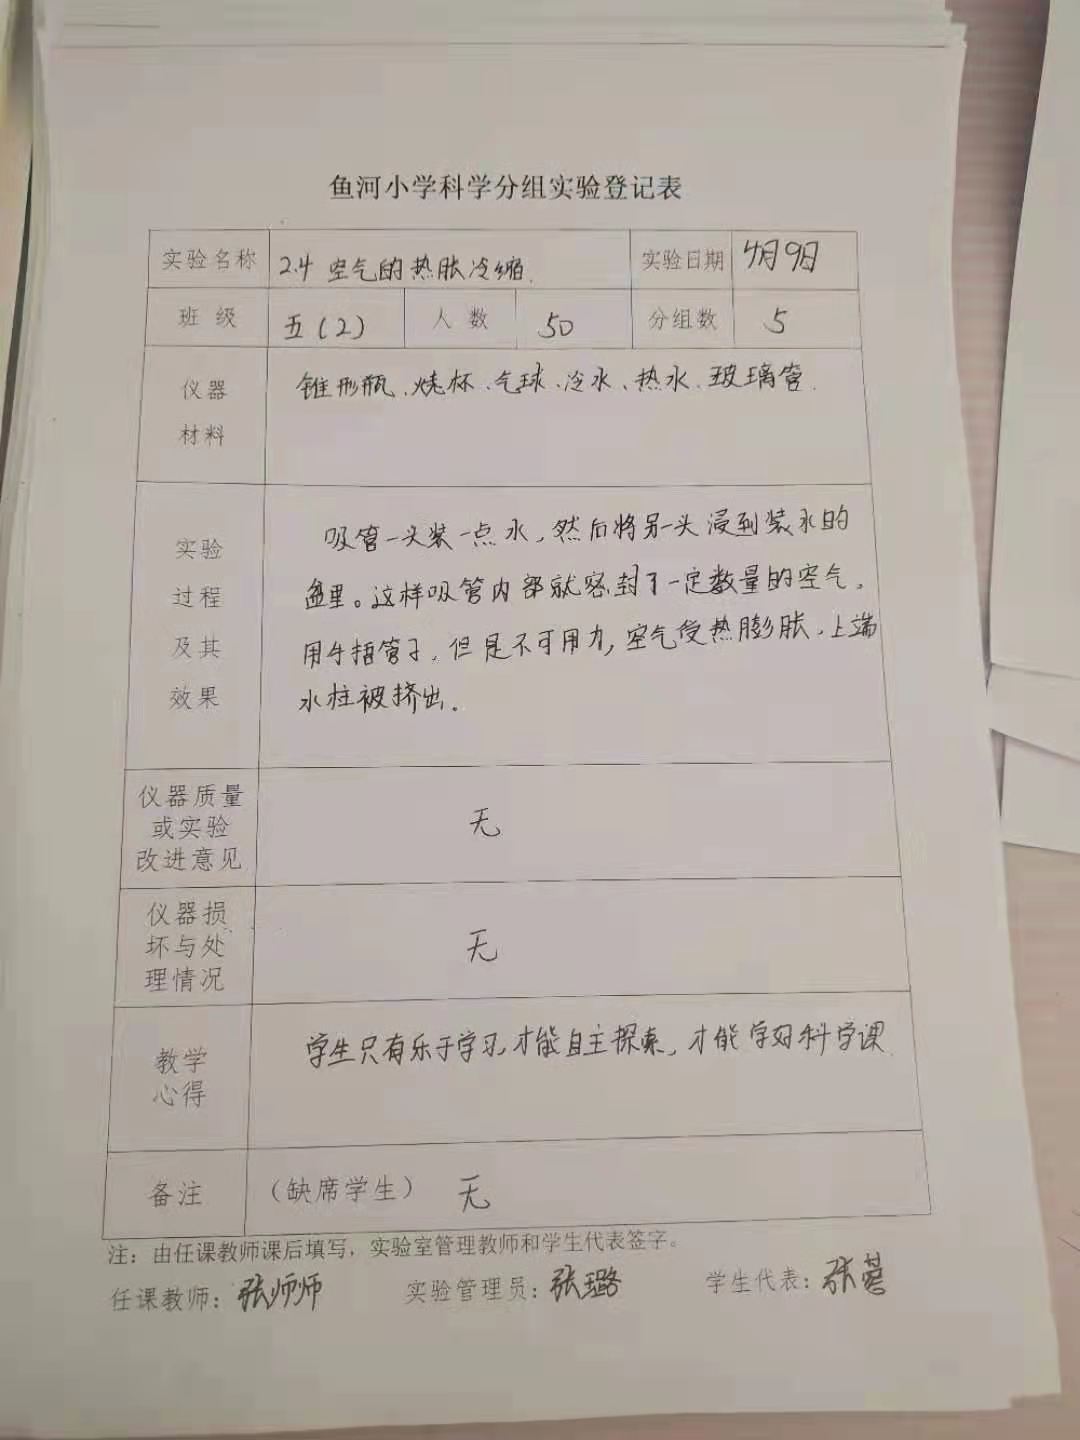 鱼河小学科学分组实验登记表
实验名称 2.4 空气的热胀冷缩. 实验日期 4月9日
班 级 五(2) 人 数 50 分组数 5
仪器
材料
锥形瓶、烧杯、气球、冷水、热水、玻璃管.
实验
过程
及其
效果
吸管一头装一点水,然后将另一头浸到装水的
盆里。这样吸管内部就密封了一定数量的空气。
用手捂管子,但是不可用力,空气受热膨胀、上端
水柱被挤出.
仪器质量
或实验
改进意见
无
仪器损
坏与处
理情况
无
教学
心得
学生只有乐于学习,才能自主探索,才能学好科学课
备注 (缺席学生) 无
注:由任课教师课后填写,实验室管理教师和学生代表签字。
任课教师:张师师 实验管理员:张璐 学生代表:张蓉